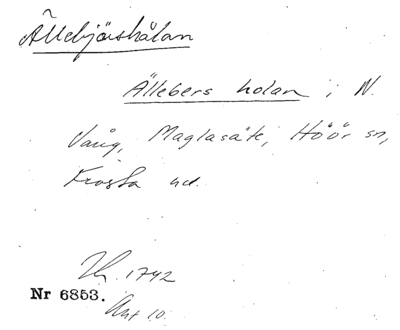 Ällebjärshålan
Ällebers holan i N.
Vång, Maglasäte, Höör sn,
Frosta hd.
Lh. 1742
Nr 6853.
Akt 10.